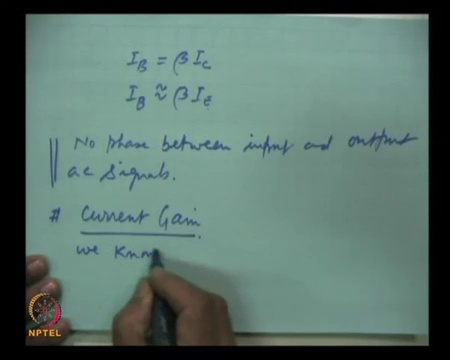 I_B = βI_C
I_B ≈ βI_E
No phase between input and output
ac signals.
# Current Gain
we know
NPTEL